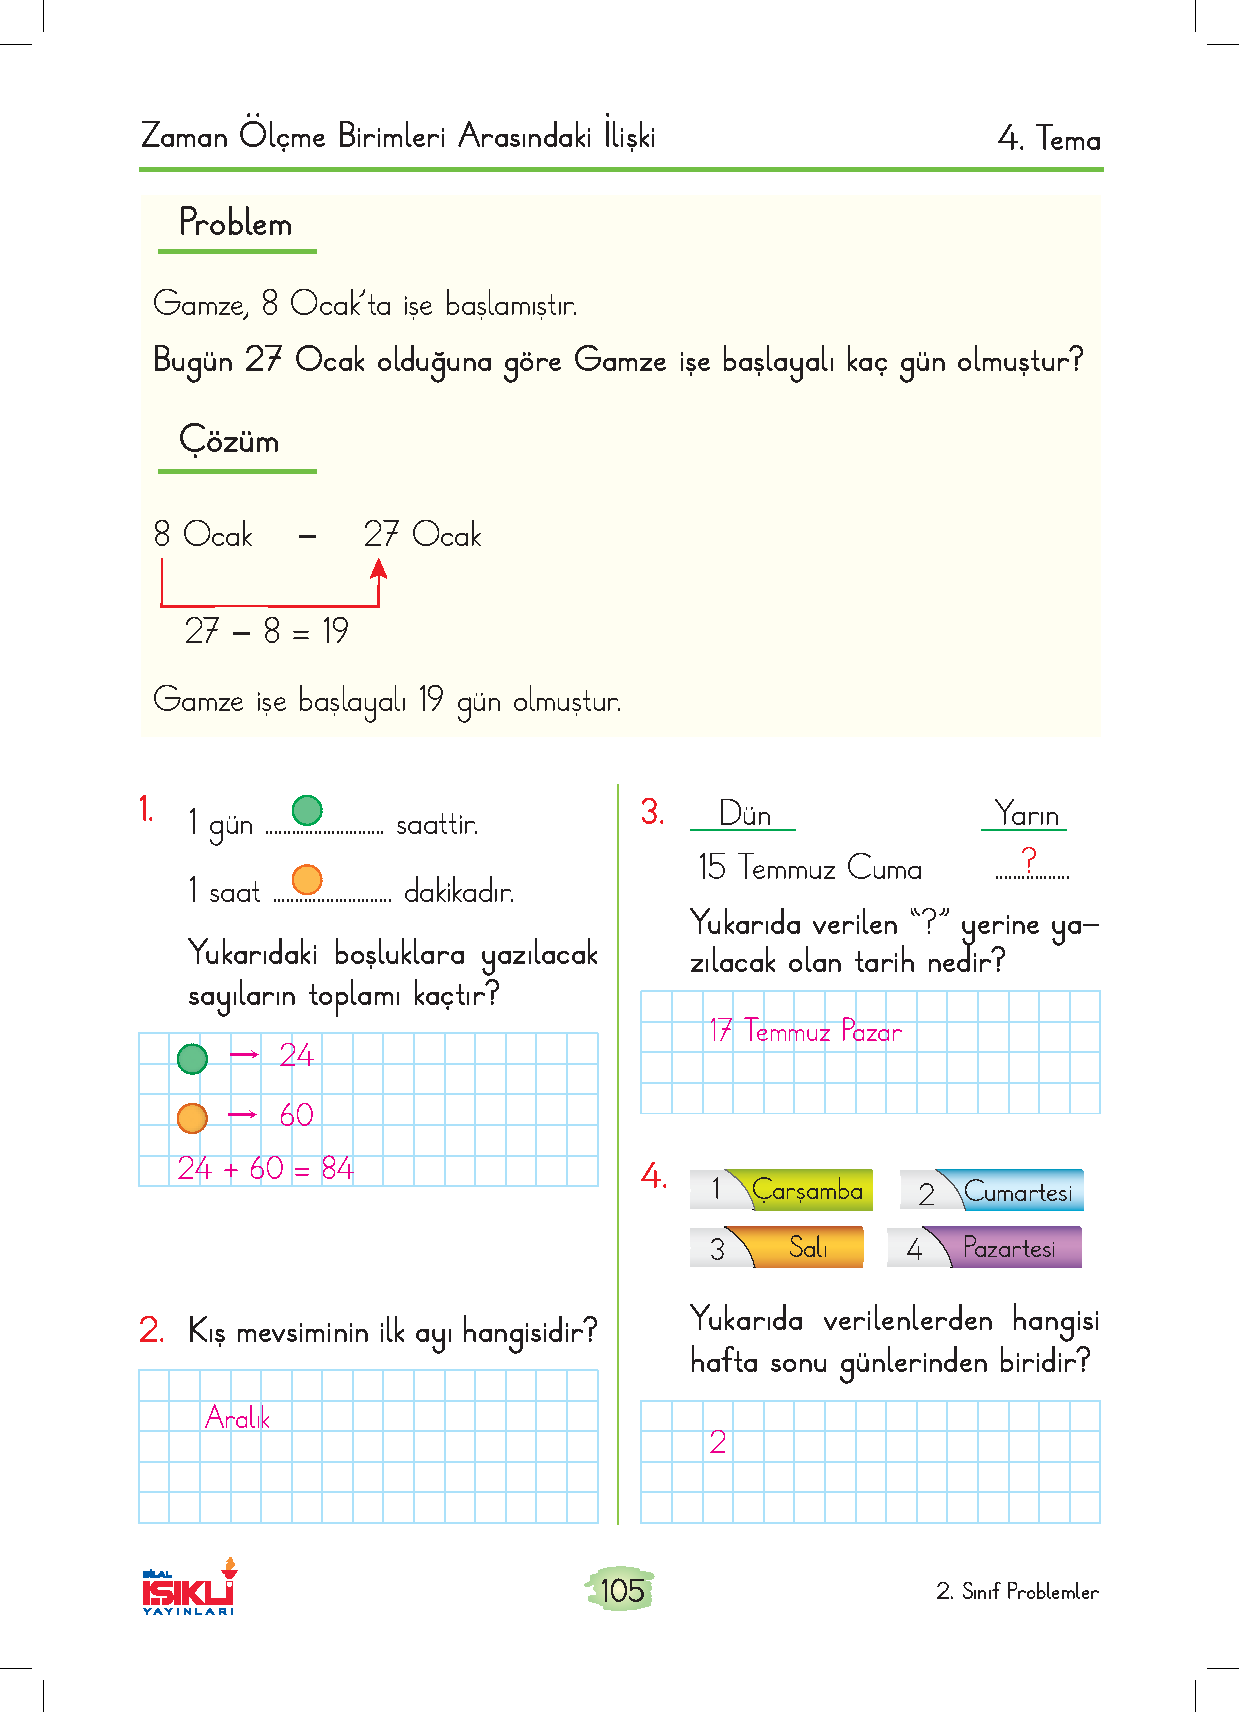 Zaman Ölçme Birimleri Arasındaki İlişki
4. Tema
Problem
Gamze, 8 Ocak’ta işe başlamıştır.
Bugün 27 Ocak olduğuna göre Gamze işe başlayalı kaç gün olmuştur?
Çözüm
8 Ocak – 27 Ocak
27 – 8 = 19
Gamze işe başlayalı 19 gün olmuştur.
1.
1 gün ........................... saattir.
1 saat ........................... dakikadır.
Yukarıdaki boşluklara yazılacak
sayıların toplamı kaçtır?
→ 24
→ 60
24 + 60 = 84
2. Kış mevsiminin ilk ayı hangisidir?
Aralık
3. Dün Yarın
15 Temmuz Cuma ........?.........
Yukarıda verilen “?” yerine ya–
zılacak olan tarih nedir?
17 Temmuz Pazar
4.
1 Çarşamba 2 Cumartesi
3 Salı 4 Pazartesi
Yukarıda verilenlerden hangisi
hafta sonu günlerinden biridir?
2
BİLAL
IŞIKLI
YAYINLARI
105
2. Sınıf Problemler